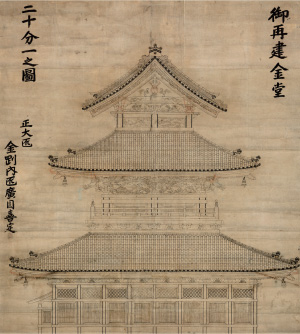 御再建金堂
二十分一之圖
正大匠
金剛内匠廣目喜定